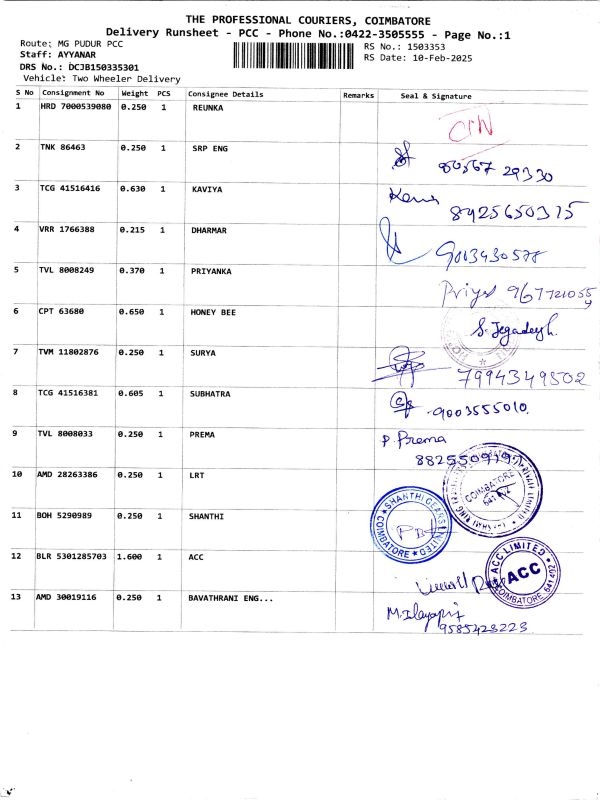 THE PROFESSIONAL COURIERS, COIMBATORE
Delivery Runsheet - PCC - Phone No.:0422-3505555 - Page No.:1
Route: MG PUDUR PCC
RS No.: 1503353
Staff: AYYANAR
RS Date: 10-Feb-2025
DRS No.: DCJB150335301
Vehicle: Two Wheeler Delivery
S No Consignment No Weight PCS Consignee Details Remarks Seal & Signature
1 HRD 7000539080 0.250 1 REUNKA
2 TNK 86463 0.250 1 SRP ENG 80567 29330
3 TCG 41516416 0.630 1 KAVIYA 8925650375
4 VRR 1766388 0.215 1 DHARMAR 9003430578
5 TVL 8008249 0.370 1 PRIYANKA Priya
6 CPT 63680 0.650 1 HONEY BEE S. Jegadeesh
7 TVM 11802876 0.250 1 SURYA 7994349502
8 TCG 41516381 0.605 1 SUBHATRA 9003555010
9 TVL 8008033 0.250 1 PREMA P. Prema
10 AMD 28263386 0.250 1 LRT COIMBATORE
11 BOH 5290989 0.250 1 SHANTHI SHANTHI GEARS LIMITED COIMBATORE
12 BLR 5301285703 1.600 1 ACC ACC LIMITED ACC COIMBATORE 641402
13 AMD 30019116 0.250 1 BAVATHRANI ENG...
9585423223